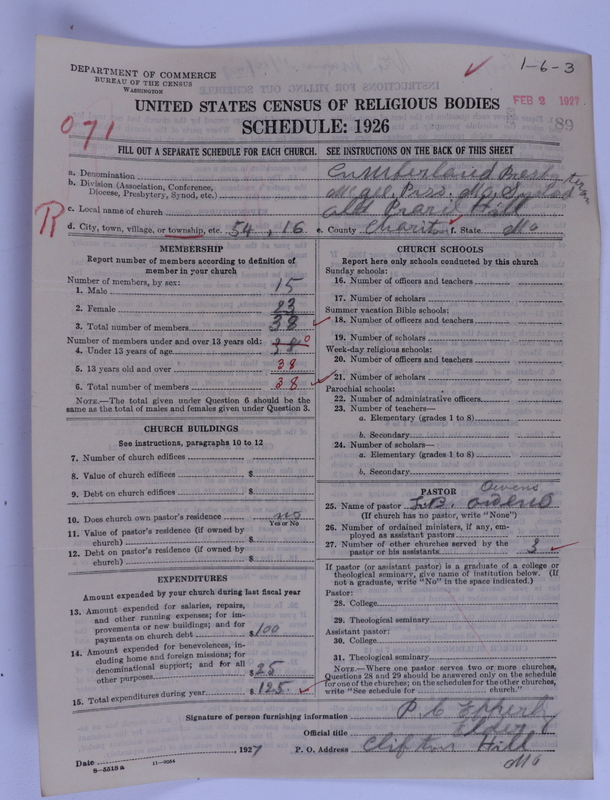 1-6-3
DEPARTMENT OF COMMERCE
BUREAU OF THE CENSUS
WASHINGTON
UNITED STATES CENSUS OF RELIGIOUS BODIES
FEB 2 1927
SCHEDULE: 1926
89
071
FILL OUT A SEPARATE SCHEDULE FOR EACH CHURCH. SEE INSTRUCTIONS ON THE BACK OF THIS SHEET
a. Denomination Cumberland Presbyterian
b. Division (Association, Conference, Diocese, Presbytery, Synod, etc.) McGee, Pres. Mo, Synod
c. Local name of church Old Prarie Hill
d. City, town, village, or township, etc. 54, 16 e. County Chariton f. State Mo
MEMBERSHIP
Report number of members according to definition of
member in your church
Number of members, by sex:
1. Male 15
2. Female 23
3. Total number of members 38
Number of members under and over 13 years old:
4. Under 13 years of age 38 0
5. 13 years old and over 38
6. Total number of members 38
NOTE.—The total given under Question 6 should be the
same as the total of males and females given under Question 3.
CHURCH BUILDINGS
See instructions, paragraphs 10 to 12
7. Number of church edifices
8. Value of church edifices $
9. Debt on church edifices $
10. Does church own pastor's residence no
Yes or No
11. Value of pastor's residence (if owned by
church) $
12. Debt on pastor's residence (if owned by
church) $
EXPENDITURES
Amount expended by your church during last fiscal year
13. Amount expended for salaries, repairs,
and other running expenses; for im-
provements or new buildings; and for
payments on church debt $100
14. Amount expended for benevolences, in-
cluding home and foreign missions; for
denominational support; and for all
other purposes $25
15. Total expenditures during year $125.
CHURCH SCHOOLS
Report here only schools conducted by this church
Sunday schools:
16. Number of officers and teachers
17. Number of scholars
Summer vacation Bible schools:
18. Number of officers and teachers
19. Number of scholars
Week-day religious schools:
20. Number of officers and teachers
21. Number of scholars
Parochial schools:
22. Number of administrative officers
23. Number of teachers—
a. Elementary (grades 1 to 8)
b. Secondary
24. Number of scholars—
a. Elementary (grades 1 to 8)
b. Secondary
PASTOR
Owens
25. Name of pastor L.B. Owens
(If church has no pastor, write "None")
26. Number of ordained ministers, if any, em-
ployed as assistant pastors
27. Number of other churches served by the
pastor or his assistants 3
If pastor (or assistant pastor) is a graduate of a college or
theological seminary, give name of institution below. (If
not a graduate, write "No" in the space indicated.)
Pastor:
28. College
29. Theological seminary
Assistant pastor:
30. College
31. Theological seminary
NOTE.—Where one pastor serves two or more churches,
Questions 28 and 29 should be answered only on the schedule
for one of the churches; on the schedules for the other churches,
write "See schedule for church."
Signature of person furnishing information P C
Official title Elder
Date , 1927 P. O. Address Clifton Hill
Mo
8-5518a 11-9034